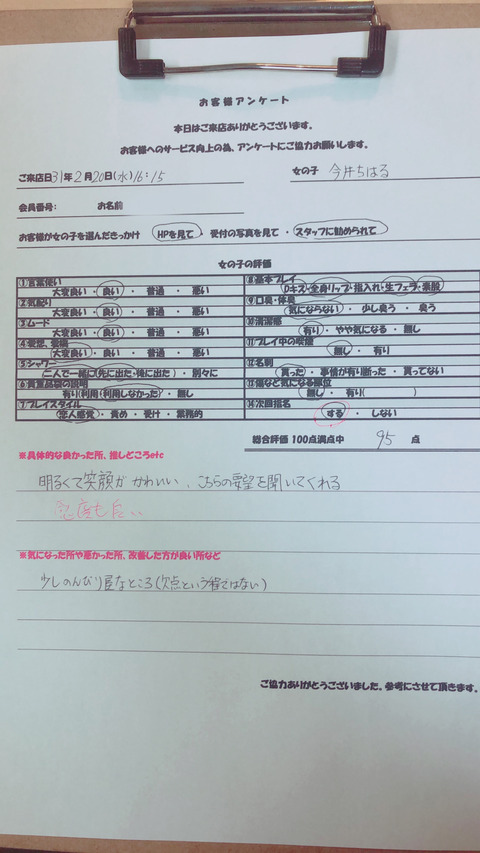 お客様アンケート
本日はご来店ありがとうございます。
お客様へのサービス向上の為、アンケートにご協力お願いします。
ご来店日31年2月20日(水)16:15 女の子 今井ちはる
会員番号: お名前
お客様が女の子を選んだきっかけ HPを見て ・ 受付の写真を見て ・ スタッフに勧められて
女の子の評価
①言葉使い
大変良い ・ 良い ・ 普通 ・ 悪い
②気配り
大変良い ・ 良い ・ 普通 ・ 悪い
③ムード
大変良い ・ 良い ・ 普通 ・ 悪い
④愛想、愛嬌
大変良い ・ 良い ・ 普通 ・ 悪い
⑤シャワー
二人で一緒に(先に出た・後に出た) ・ 別々に
⑥貴重品袋の説明
有り(利用・利用しなかった) ・ 無し
⑦プレイスタイル
恋人感覚 ・ 責め ・ 受け ・ 業務的
⑧基本プレイ
Dキス・全身リップ・指入れ・生フェラ・素股
⑨口臭・体臭
気にならない ・ 少し臭う ・ 臭う
⑩清潔感
有り ・ やや気になる ・ 無し
⑪プレイ中の喫煙
無し ・ 有り
⑫名刺
貰った ・ 事情が有り断った ・ 貰ってない
⑬傷など気になる部位
無し ・ 有り( )
⑭次回指名
する ・ しない
総合評価 100点満点中 95 点
※具体的な良かった所、推しどころetc
明るくて笑顔がかわいい、こちらの要望を聞いてくれる
感度も良い
※気になった所や悪かった所、改善した方が良い所など
少しのんびり屋なところ(欠点という程ではない)
ご協力ありがとうございました。参考にさせて頂きます。